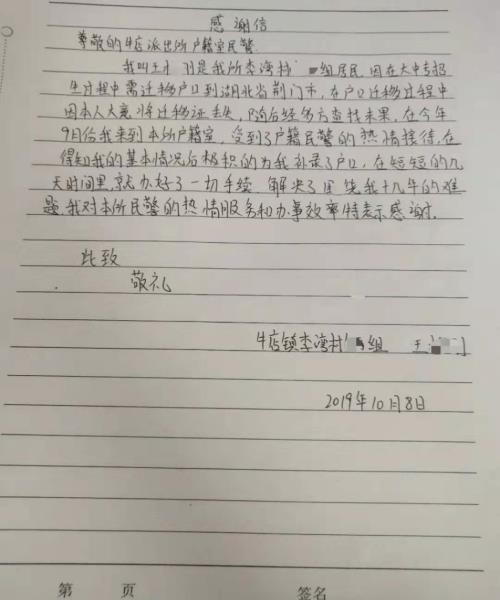 感谢信
尊敬的牛店派出所户籍室民警
我叫王 是我所李湾村 组居民 因在大中专招
生过程中需迁移户口到湖北省荆门市,在户口迁移过程中
因本人大意 将迁移证丢失, 后经多方查找未果,在今年
9月份我来到本所户籍室,受到了户籍民警的热情接待,在
得知我的基本情况后积极的为我补录了户口,在短短的几
天时间里,就办好了一切手续 解决了困绕我十几年的难
题,我对本所民警的热情服务和办事效率特表示感谢.
此致
敬礼
牛店镇李湾村 组 王
2019年10月8日
第 页 签名